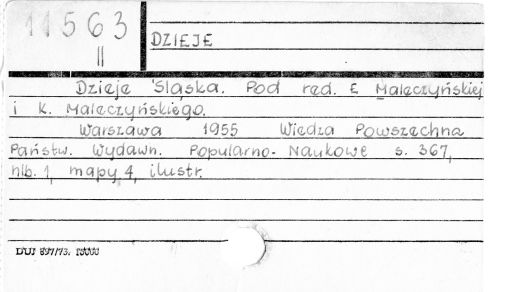 11563
II
DZIEJE
Dzieje Śląska. Pod red. E Maleczyńskiej
i K. Maleczyńskiego.
Warszawa 1955 Wiedza Powszechna
Państw. Wydawn. Popularno-Naukowe s. 367,
nlb. 1, mapy 4, ilustr.